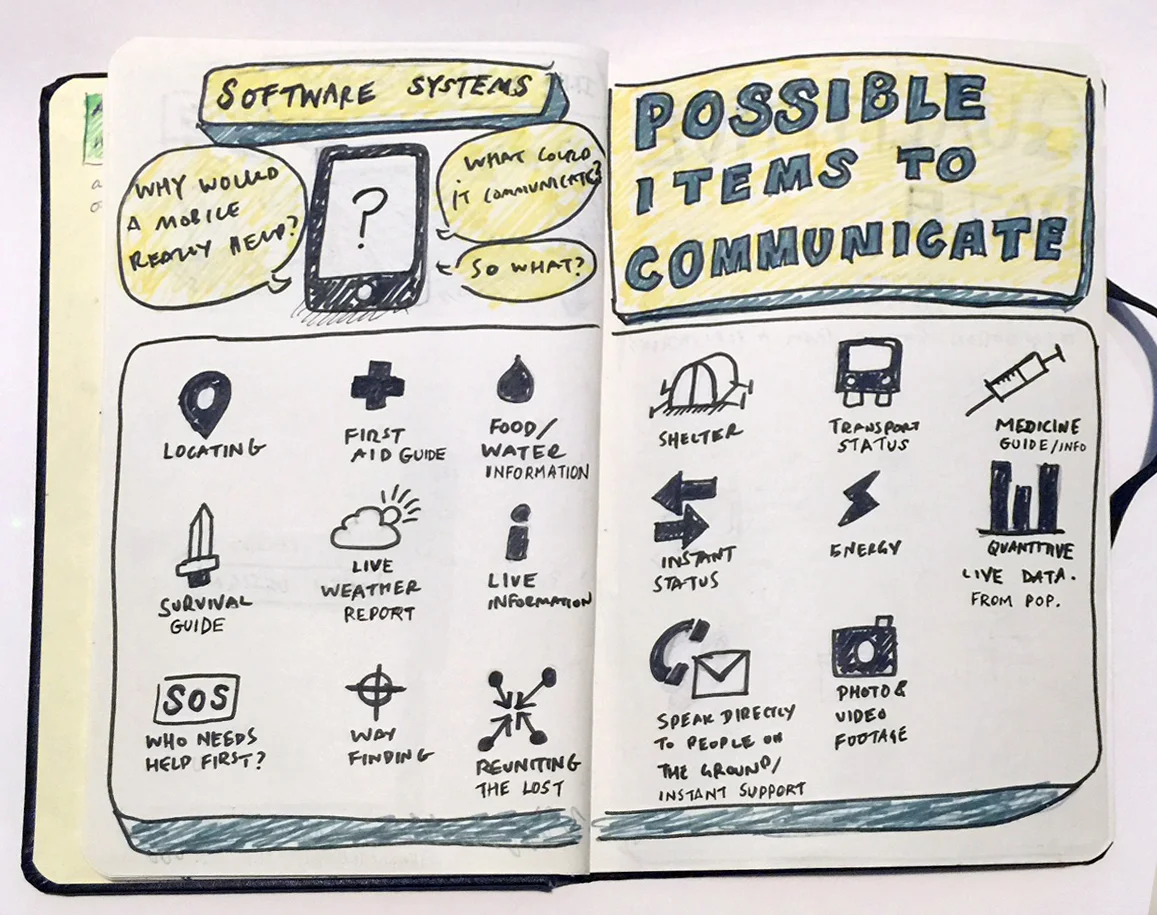 SOFTWARE SYSTEMS
WHY WOULD
A MOBILE
REALLY HELP?
?
WHAT COULD
IT COMMUNICATE?
SO WHAT?
LOCATING
FIRST
AID GUIDE
FOOD/
WATER
INFORMATION
SURVIVAL
GUIDE
LIVE
WEATHER
REPORT
LIVE
INFORMATION
SOS
WHO NEEDS
HELP FIRST?
WAY
FINDING
REUNITING
THE LOST
POSSIBLE
ITEMS TO
COMMUNICATE
SHELTER
TRANSPORT
STATUS
MEDICINE
GUIDE/INFO
INSTANT
STATUS
ENERGY
QUANTITIVE
LIVE DATA.
FROM POP.
SPEAK DIRECTLY
TO PEOPLE ON
THE GROUND/
INSTANT SUPPORT
PHOTO &
VIDEO
FOOTAGE